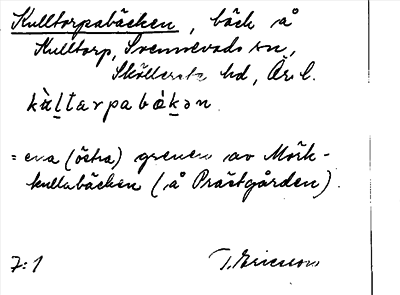 Kulltorpabäcken, bäck å
Kulltorp, Svennevads sn,
Sköllersta hd, Ör. l.
kùḻtarpabä̀ḵən
= ena (östra) grenen av Mörk-
kullabäcken (å Prästgården).
7:1 T. Ericsson